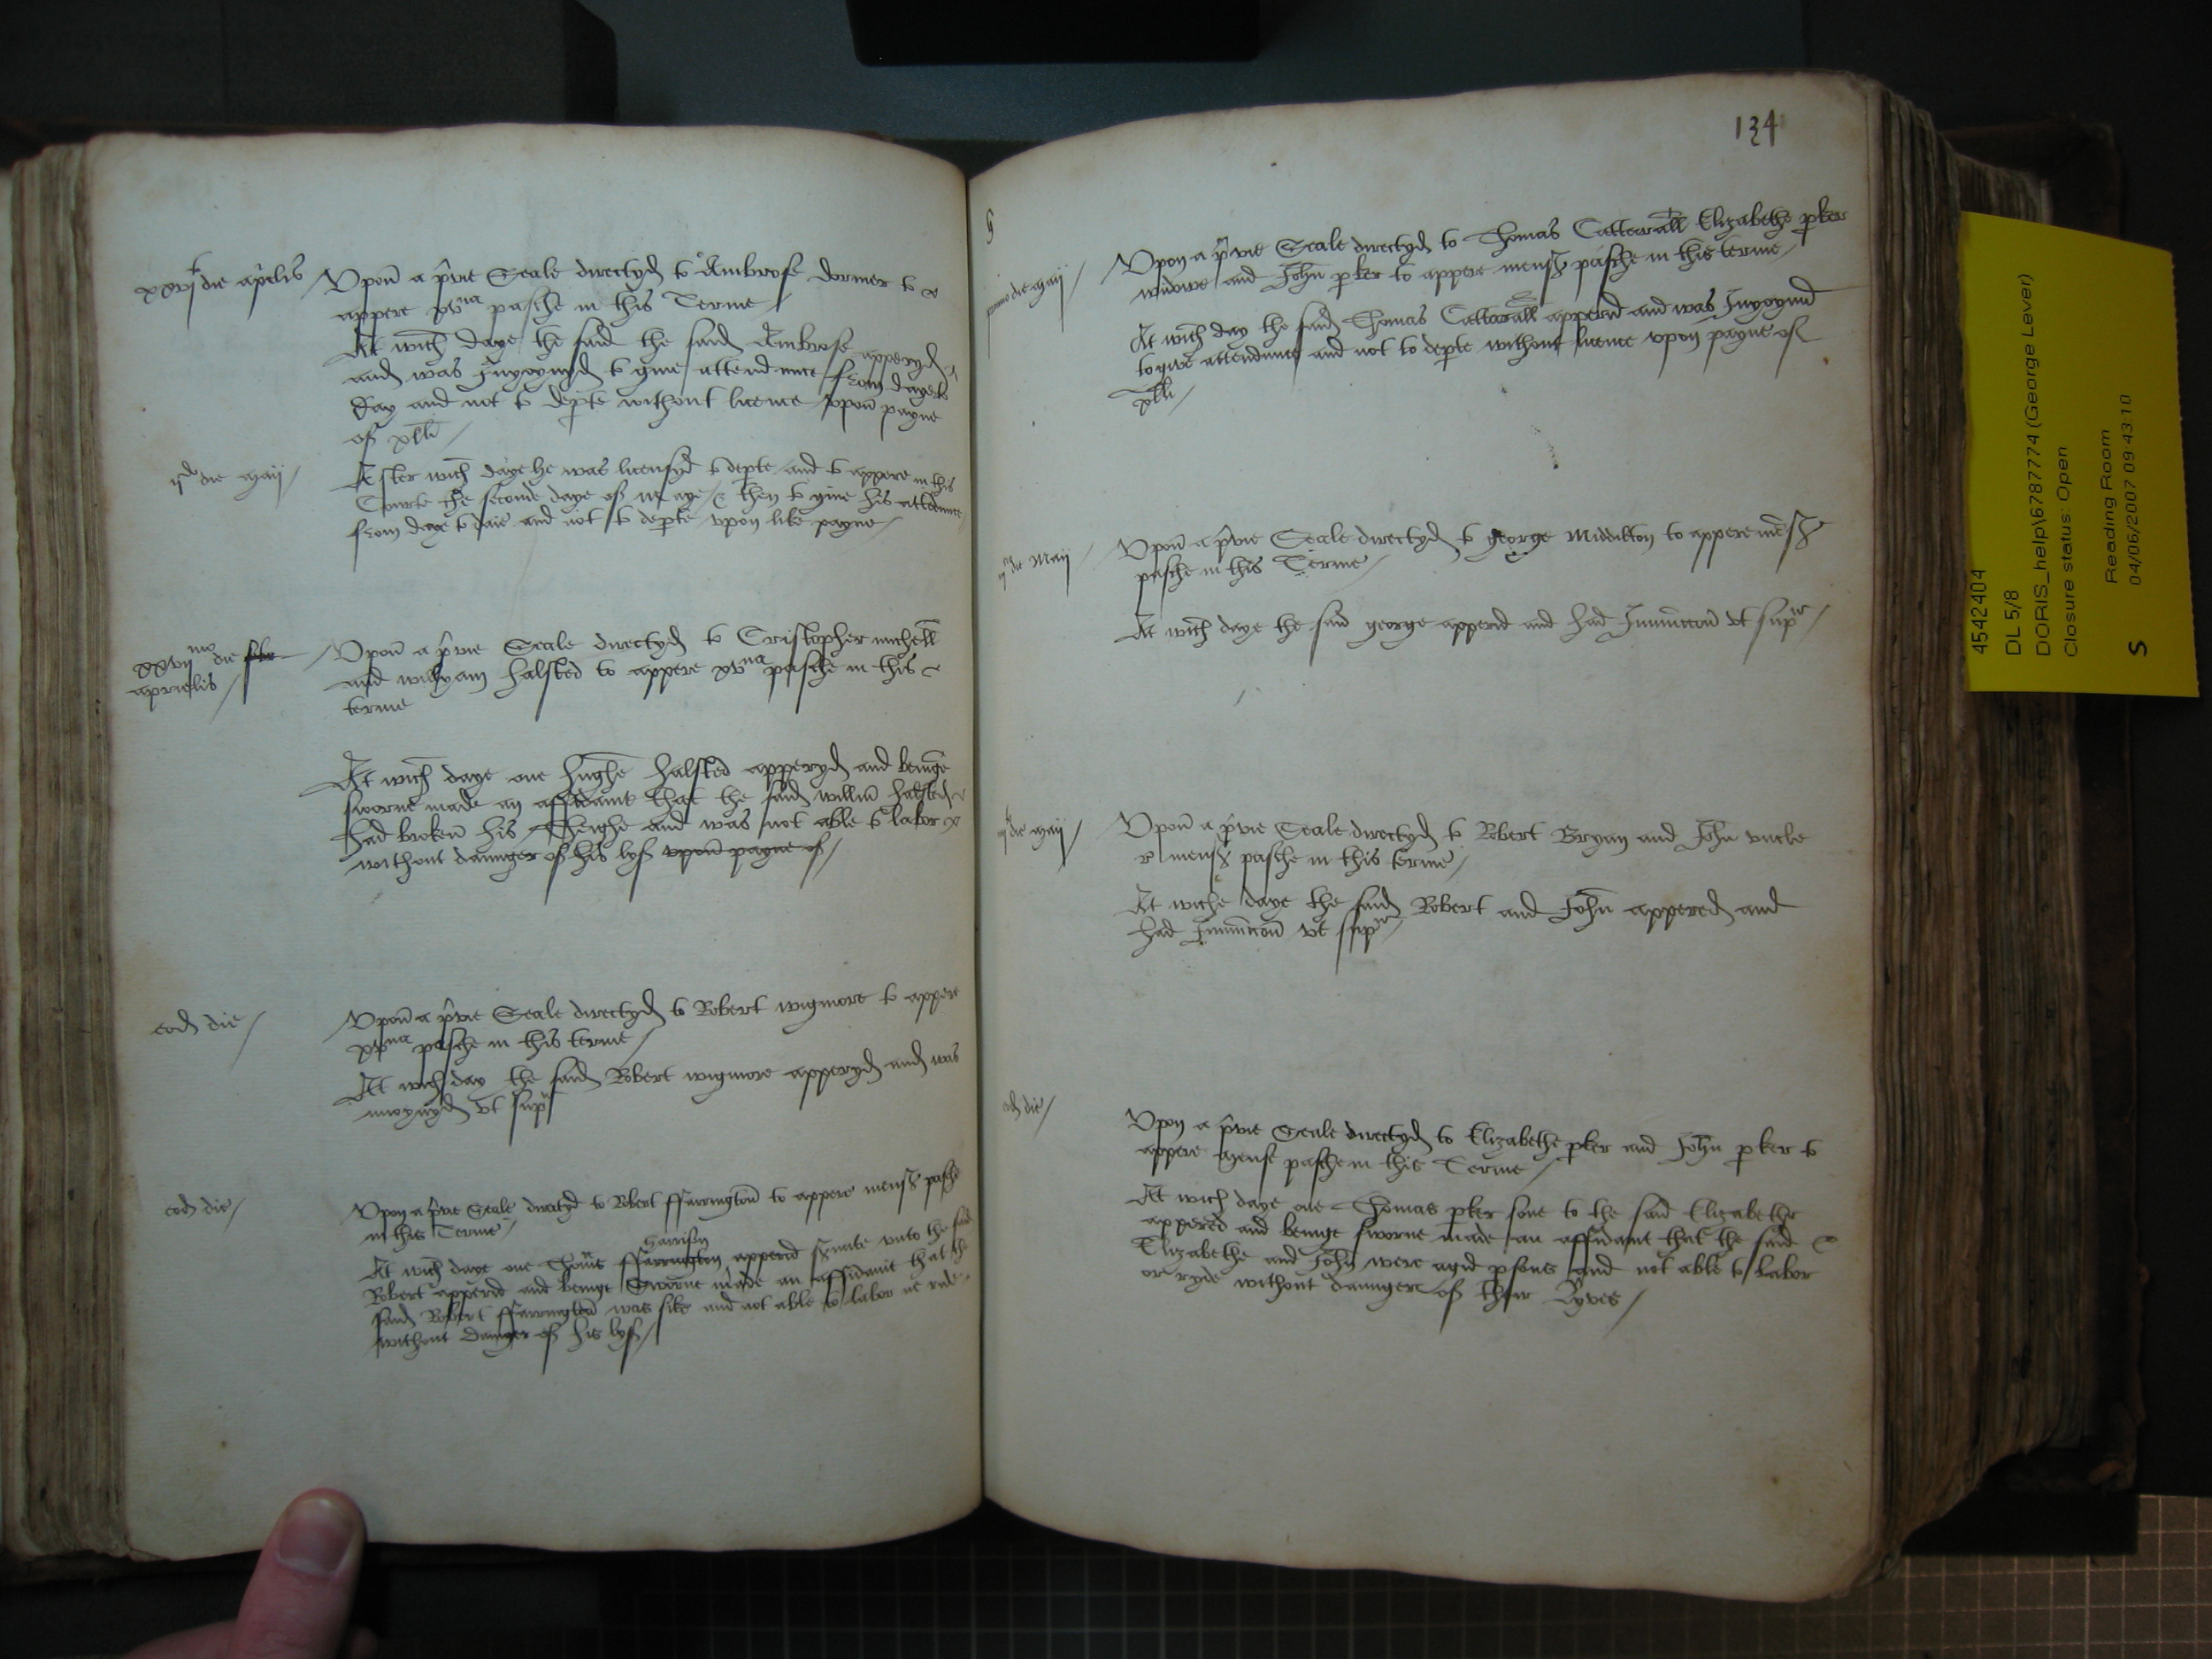 xxvj to die ap'elis / Upon a p'vie Seale directyd to Ambrose dormer to
appere xv na pasche in this Terme /
At wich daye the said the said Ambrose apperyd
and was Inyoynyd to give attendance from daye to
day and not to dep'te without licence upon payne
of xl li /
ij do die Maij / After wich daye he was licensyd to dep'te and to appere in this
Courte the seconde daye of maye & then to give his attendance
from daye to daie and not to dep'te upon like payne /
xxvij mo die / Upon a p'vie Seale directyd to Cristopher michell
aprielis / and willyam halsted to appere xv na pasche in this
terme
At wich daye one hughe halsted apperyd and beinge
sworne made an affidavit that the said will'm halsted
had broken his Theighe and was not able to labor
without daunger of his lyf upon payne of /
eod die / Upon a p'vie Seale directyd to Robert wigmore to appere
xv na pasche in this terme /
At wich day the said Robert wigmore apperyd and was
inioynyd vt sup a
eod die / Upon a p'vie Seale directyd to Robert ffarrington to appere mens pasche
in this Terme /
Harrison
At wich daye one Thom's ffarrington apperid s'vante unto the said
Robert apperid and beinge Sworne made an affidavit that the
said Robert ffarrington was sike and not able to labor ne ride
without daunger of his lyf /
134
primo die Maij / Upon a p'vie Seale directyd to Thomas Catterall Elizabethe p'ker
widowe and John p'ker to appere mens pasche in this terme /
At wich day the said Thomas Catterall apperid and was Inyoynid
to give attendunce and not to dep'te without licence upon payne of
xl li /
ij do die Maij / Upon a p'vie Seale directyd to george Middilton to appere mens
pasche in this Terme /
At wich daye the said george apperid and had Iniunccion vt sup a /
die Maij / Upon a p'vie Seale directyd to Robert Bryan and John uncle
mens pasche in this terme /
At wiche daye the said Robert and John appered and
had Iniunccion vt sup a /
eod die / Upon a p'vie Seale directyd to Elizabethe p'ker and John p'ker to
appere Mense pasche in this Terme /
At wich daye one Thomas p'ker sone to the said Elizabethe
appered and beinge sworne made an affidavit that the said
Elizabethe and John were agid p'sons and not able to labor
or ryde without daunger of their Lyves /
4542404
DL 5/8
DORIS_help\6787774 (George Lever)
Closure status: Open
Reading Room
S 04/06/2007 09:43:10